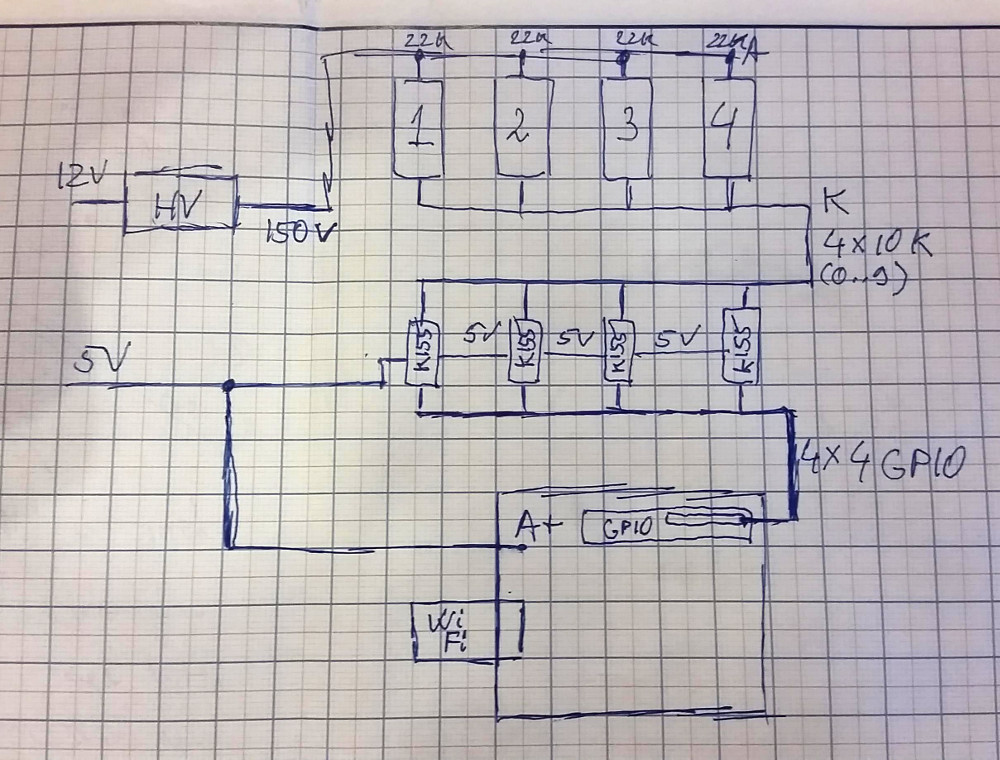 22k 22k 22k 22k A
1 2 3 4
12V
HV
150V
K
4x10K
(0..9)
K155 5V K155 5V K155 5V K155
5V
4x4 GPIO
A+ GPIO
Wi
Fi